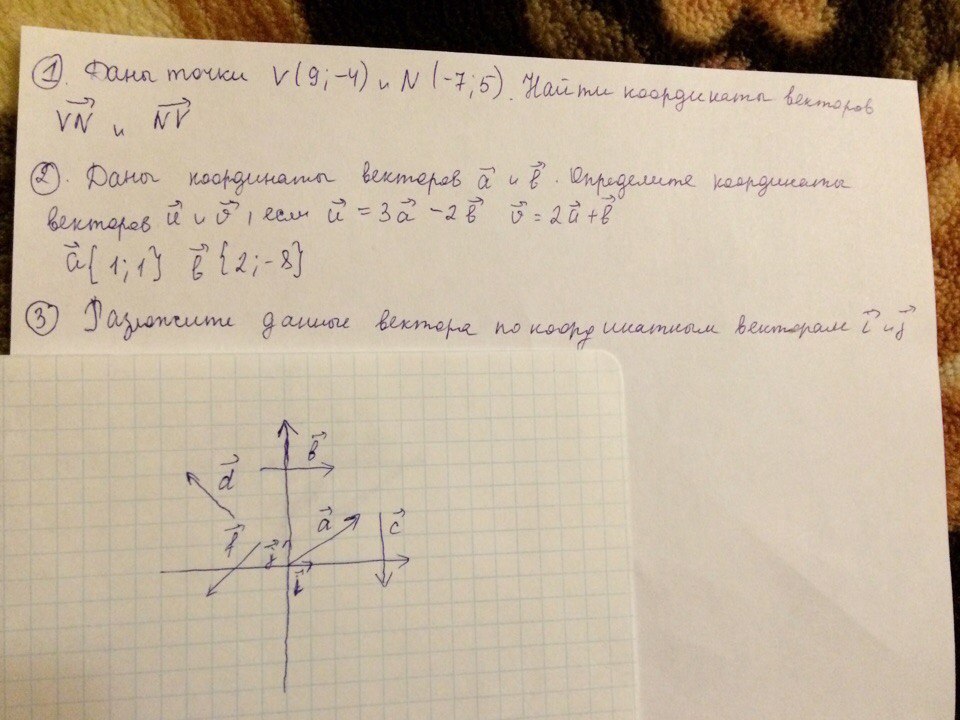 ① Даны точки V(9;-4) и N(-7;5). Найти координаты векторов
VN и NV
② Даны координаты векторов a и b. Определите координаты
векторов u и v, если u = 3a - 2b v = 2u + b
a{1;1} b{2;-8}
③ Разложите данные вектора по координатным векторам i и j
b
d
a
c
f
j
i